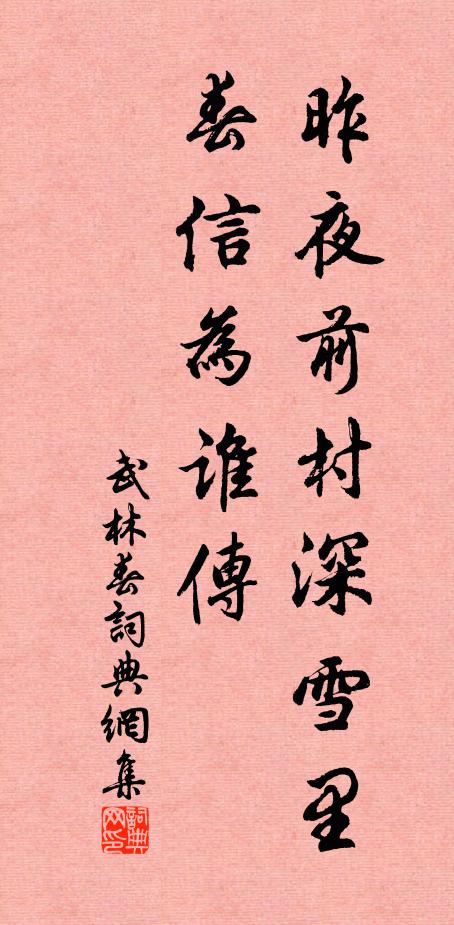 昨夜前村深雪里
春信為誰傳
武林春詞典網集
詞典
网印